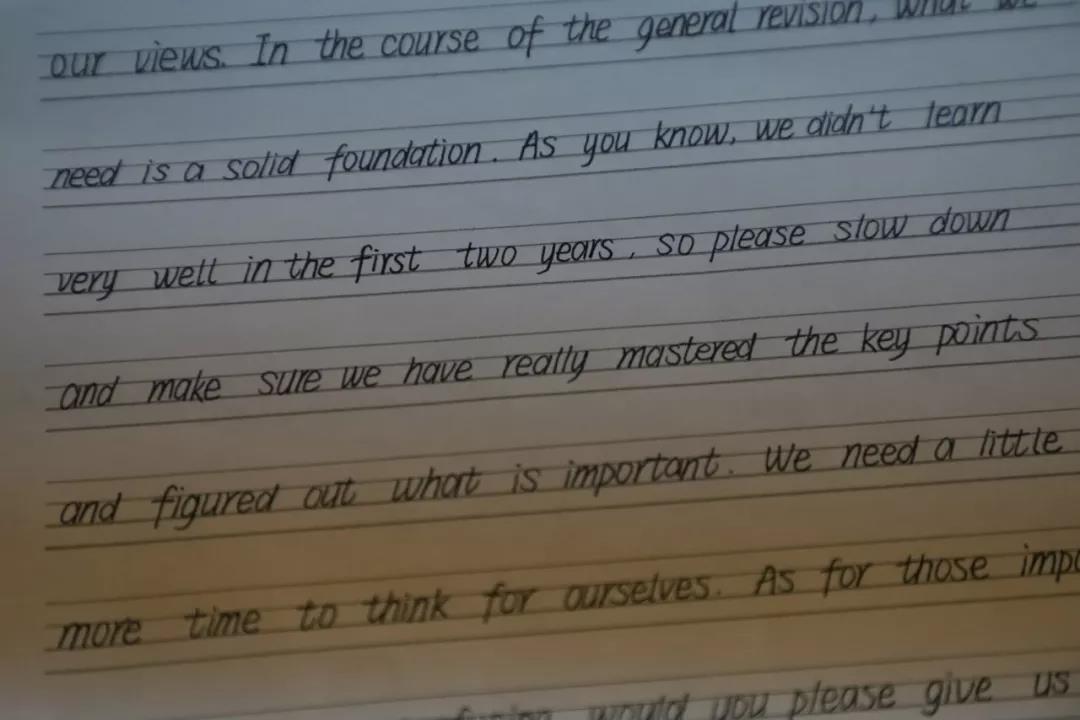 our views. In the course of the general revision, what we
need is a solid foundation. As you know, we didn't learn
very well in the first two years, so please slow down
and make sure we have really mastered the key points
and figured out what is important. We need a little
more time to think for ourselves. As for those
would you please give us